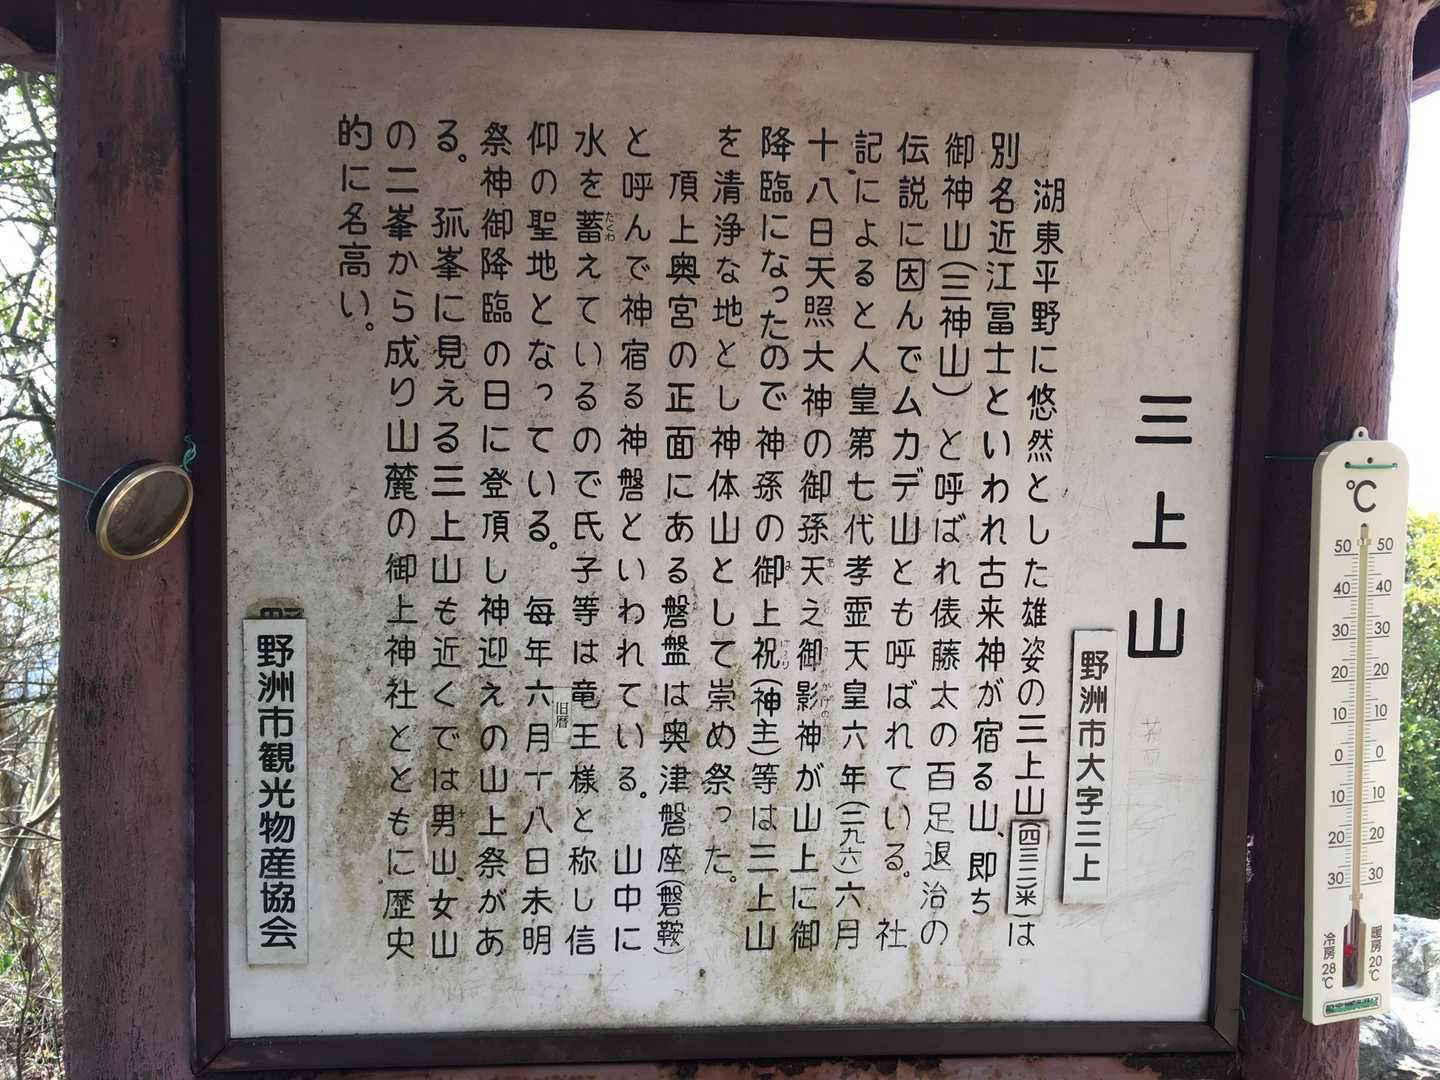 三上山
野洲市大字三上
湖東平野に悠然とした雄姿の三上山(四三二米)は
別名近江冨士といわれ古来神が宿る山、即ち
御神山(三神山)と呼ばれ俵藤太の百足退治の
伝説に因んでムカデ山とも呼ばれている。社
記によると人皇第七代孝霊天皇六年(二九六)六月
十八日天照大神の御孫天之御影神が山上に御
降臨になったので神孫の御上祝(神主)等は三上山
を清浄な地とし神体山として崇め祭った。
頂上奥宮の正面にある磐盤は奥津磐座(磐鞍)
と呼んで神宿る神磐といわれている。山中に
水を蓄えているので氏子等は竜王様と称し信
たくわ
仰の聖地となっている。毎年六月十八日未明
旧暦
祭神御降臨の日に登頂し神迎えの山上祭があ
る。孤峯に見える三上山も近くでは男山、女山
の二峯から成り山麓の御上神社とともに歴史
的に名高い。
野洲市観光物産協会
℃
50 50
40 40
30 30
20 20
10 10
0 0
10 10
20 20
30 30
冷房28℃
暖房20℃